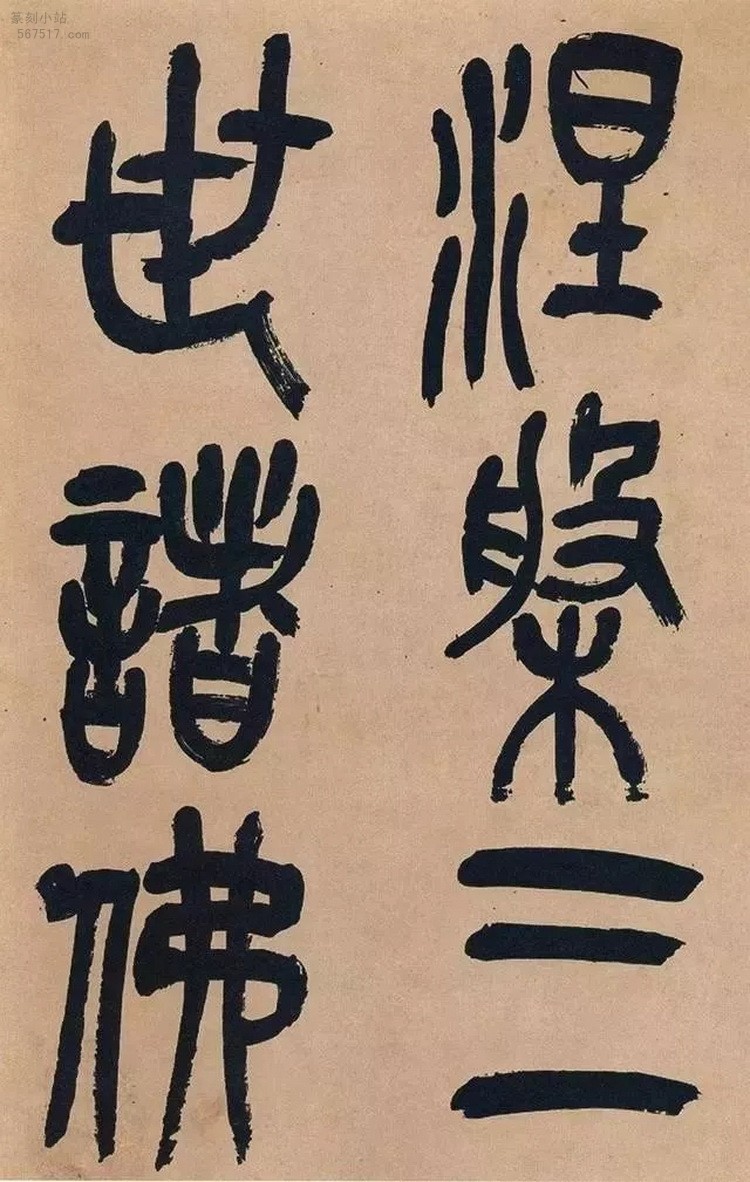 涅槃三
世諸佛
篆刻小站
567517.com